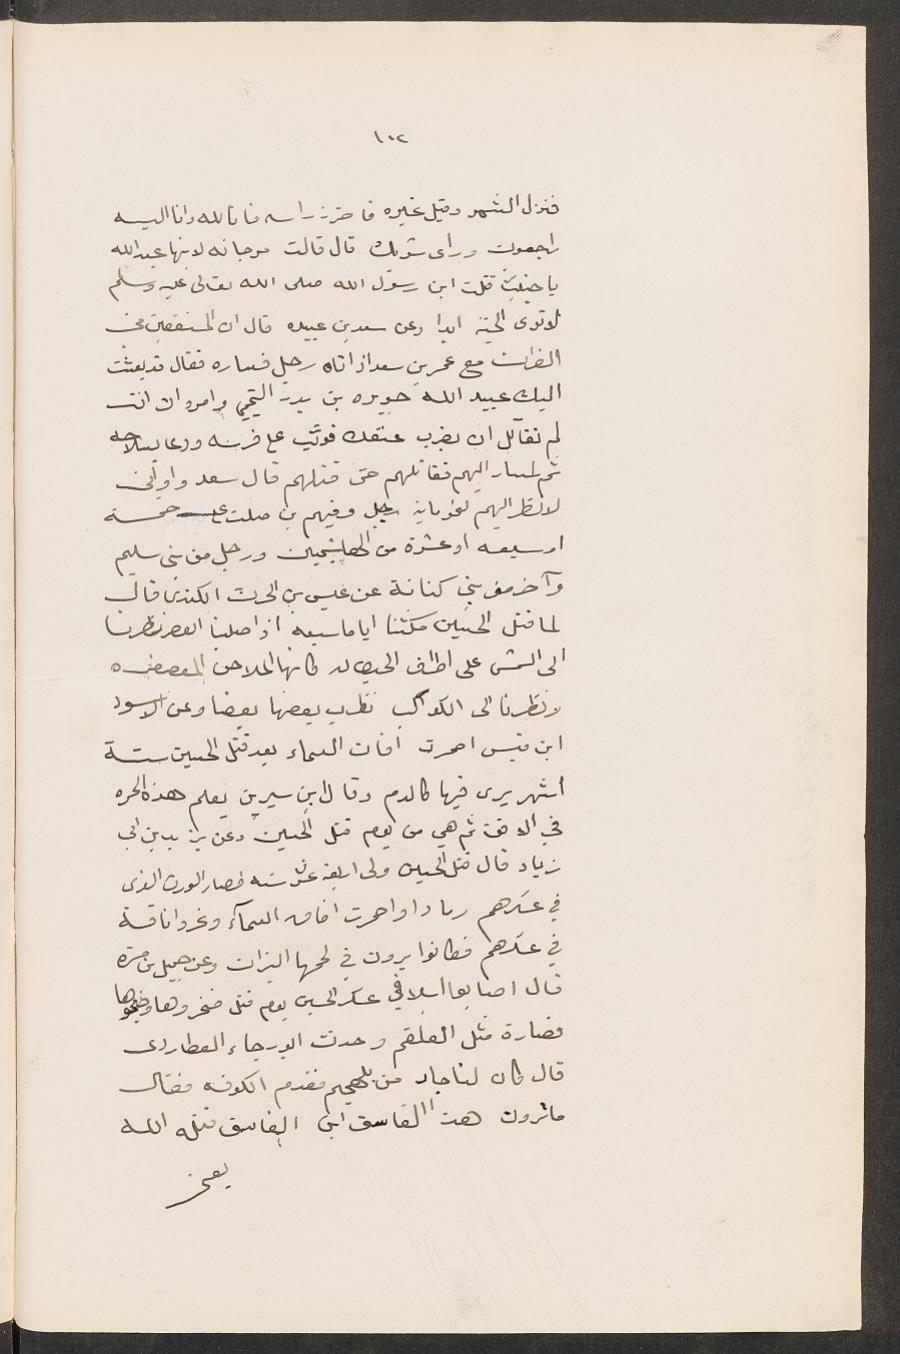 ١٠٢
فنزل الشمر وقيل غيره فاحتز راسه فانا لله وانا اليه
راجعون وراى شريك قال قالت مرجانه لابنها عبيد الله
يا خبيث قتلت ابن رسول الله صلى الله تعالى عليه وسلم
لا ترى الجنة ابدا وعن سعد بن عبيده قال ان المستنقعين في
الفرات مع عمر بن سعد اذ اتاه رجل فساره فقال قد بعثت
اليك عبيد الله جويره بن بدر التيمي وامره ان انت
لم تقاتل ان يضرب عنقك فوثب على فرسه ودعا بسلاحه
ثم سار اليهم فقاتلهم حتى قتلهم قال سعد واني
لانظر اليهم نحو ماية رجل وفيهم بن صلت على خمسة
او سبعه او عشرة من الهاشميين ورجل من بني سليم
وآخر من بني كنانة عن عيس بن الحرث الكندي قال
لما قتل الحسين مكثنا اياما سبعه اذا صلينا العصر نظرنا
الى الشمس على اطراف الحيطان كانها الملاحف المعصفره
ونظرنا الى الكواكب تضرب بعضها بعضا وعن الاسود
ابن قيس احمرت افاق السماء بعد قتل الحسين ستة
أشهر يرى فيها كالدم وقال ابن سيرين يعلم هذه الحمره
في الافق ثم هي من يوم قتل الحسين وعن يزيد بن ابي
زياد قال قتل الحسين ولى اربعة عشر سنه فصار الورس الذى
في عسكرهم رمادا واحمرت افاق السماء ونحروا ناقة
في عسكرهم فكانوا يرون في لحمها النيران وعن جميل بن مرة
قال اصابوا ابلا في عسكر الحسين يوم قتل فنحروها وطبخوها
فصارة مثل العلقم وحدث ابو رجاء العطاردى
قال كان لنا جار من بلهجيم فقدم الكوفه فقال
ما ترون هذا الفاسق ابن الفاسق قتله الله
يعني